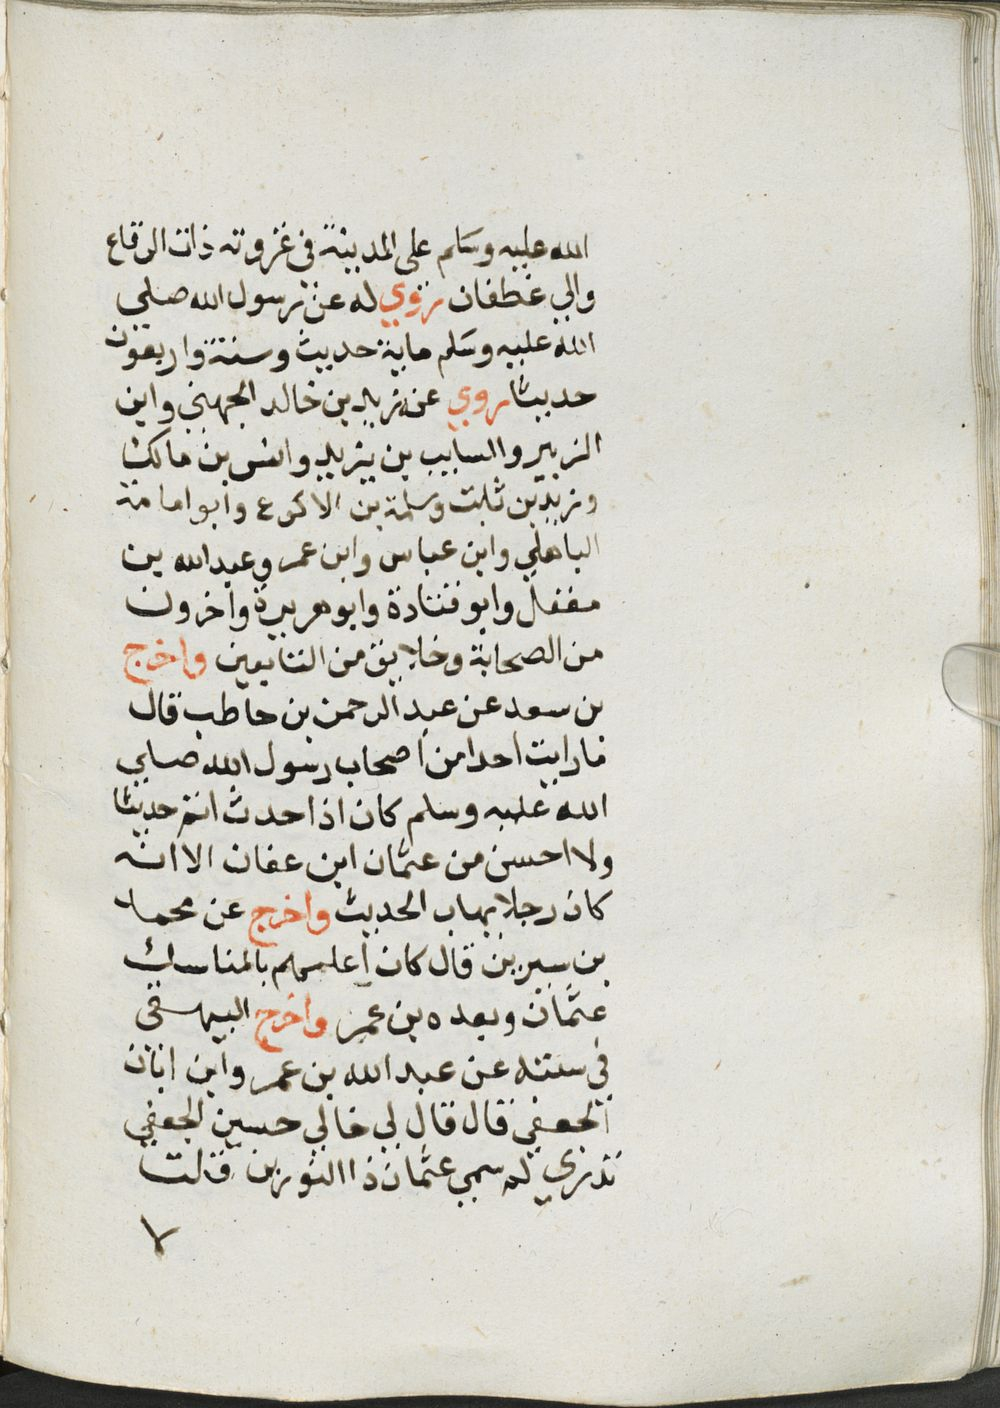 الله عليه وسلم على المدينة في غزوته ذات الرقاع
والي غطفان روي له عن رسول الله صلى
الله عليه وسلم ماية حديث وستة واربعون
حديثا روي عنه زيد بن خالد الجهني وابن
الزبير والسايب بن يزيد وانس بن مالك
وزيد بن ثابت وسلمة بن الاكوع وابو امامة
الباهلي وابن عباس وابن عمر وعبد الله بن
مغفل وابو قتادة وابو هريرة واخرون
من الصحابة وخلايق من التابعين واخرج
بن سعد عن عبد الرحمن بن حاطب قال
ما رايت احدا من اصحاب رسول الله صلي
الله عليه وسلم كان اذا حدث اتم حديثا
ولا احسن من عثمان ابن عفان الا انه
كان رجلا يهاب الحديث واخرج عن محمد
بن سيرين قال كان اعلمهم بالمناسك
عثمان وبعده بن عمر واخرج البيهقي
في سننه عن عبد الله بن عمر وابن ابان
الجعفي قال قال لي خالي حسين الجعفي
تدري لم سمي عثمان ذا النورين قلت
٧